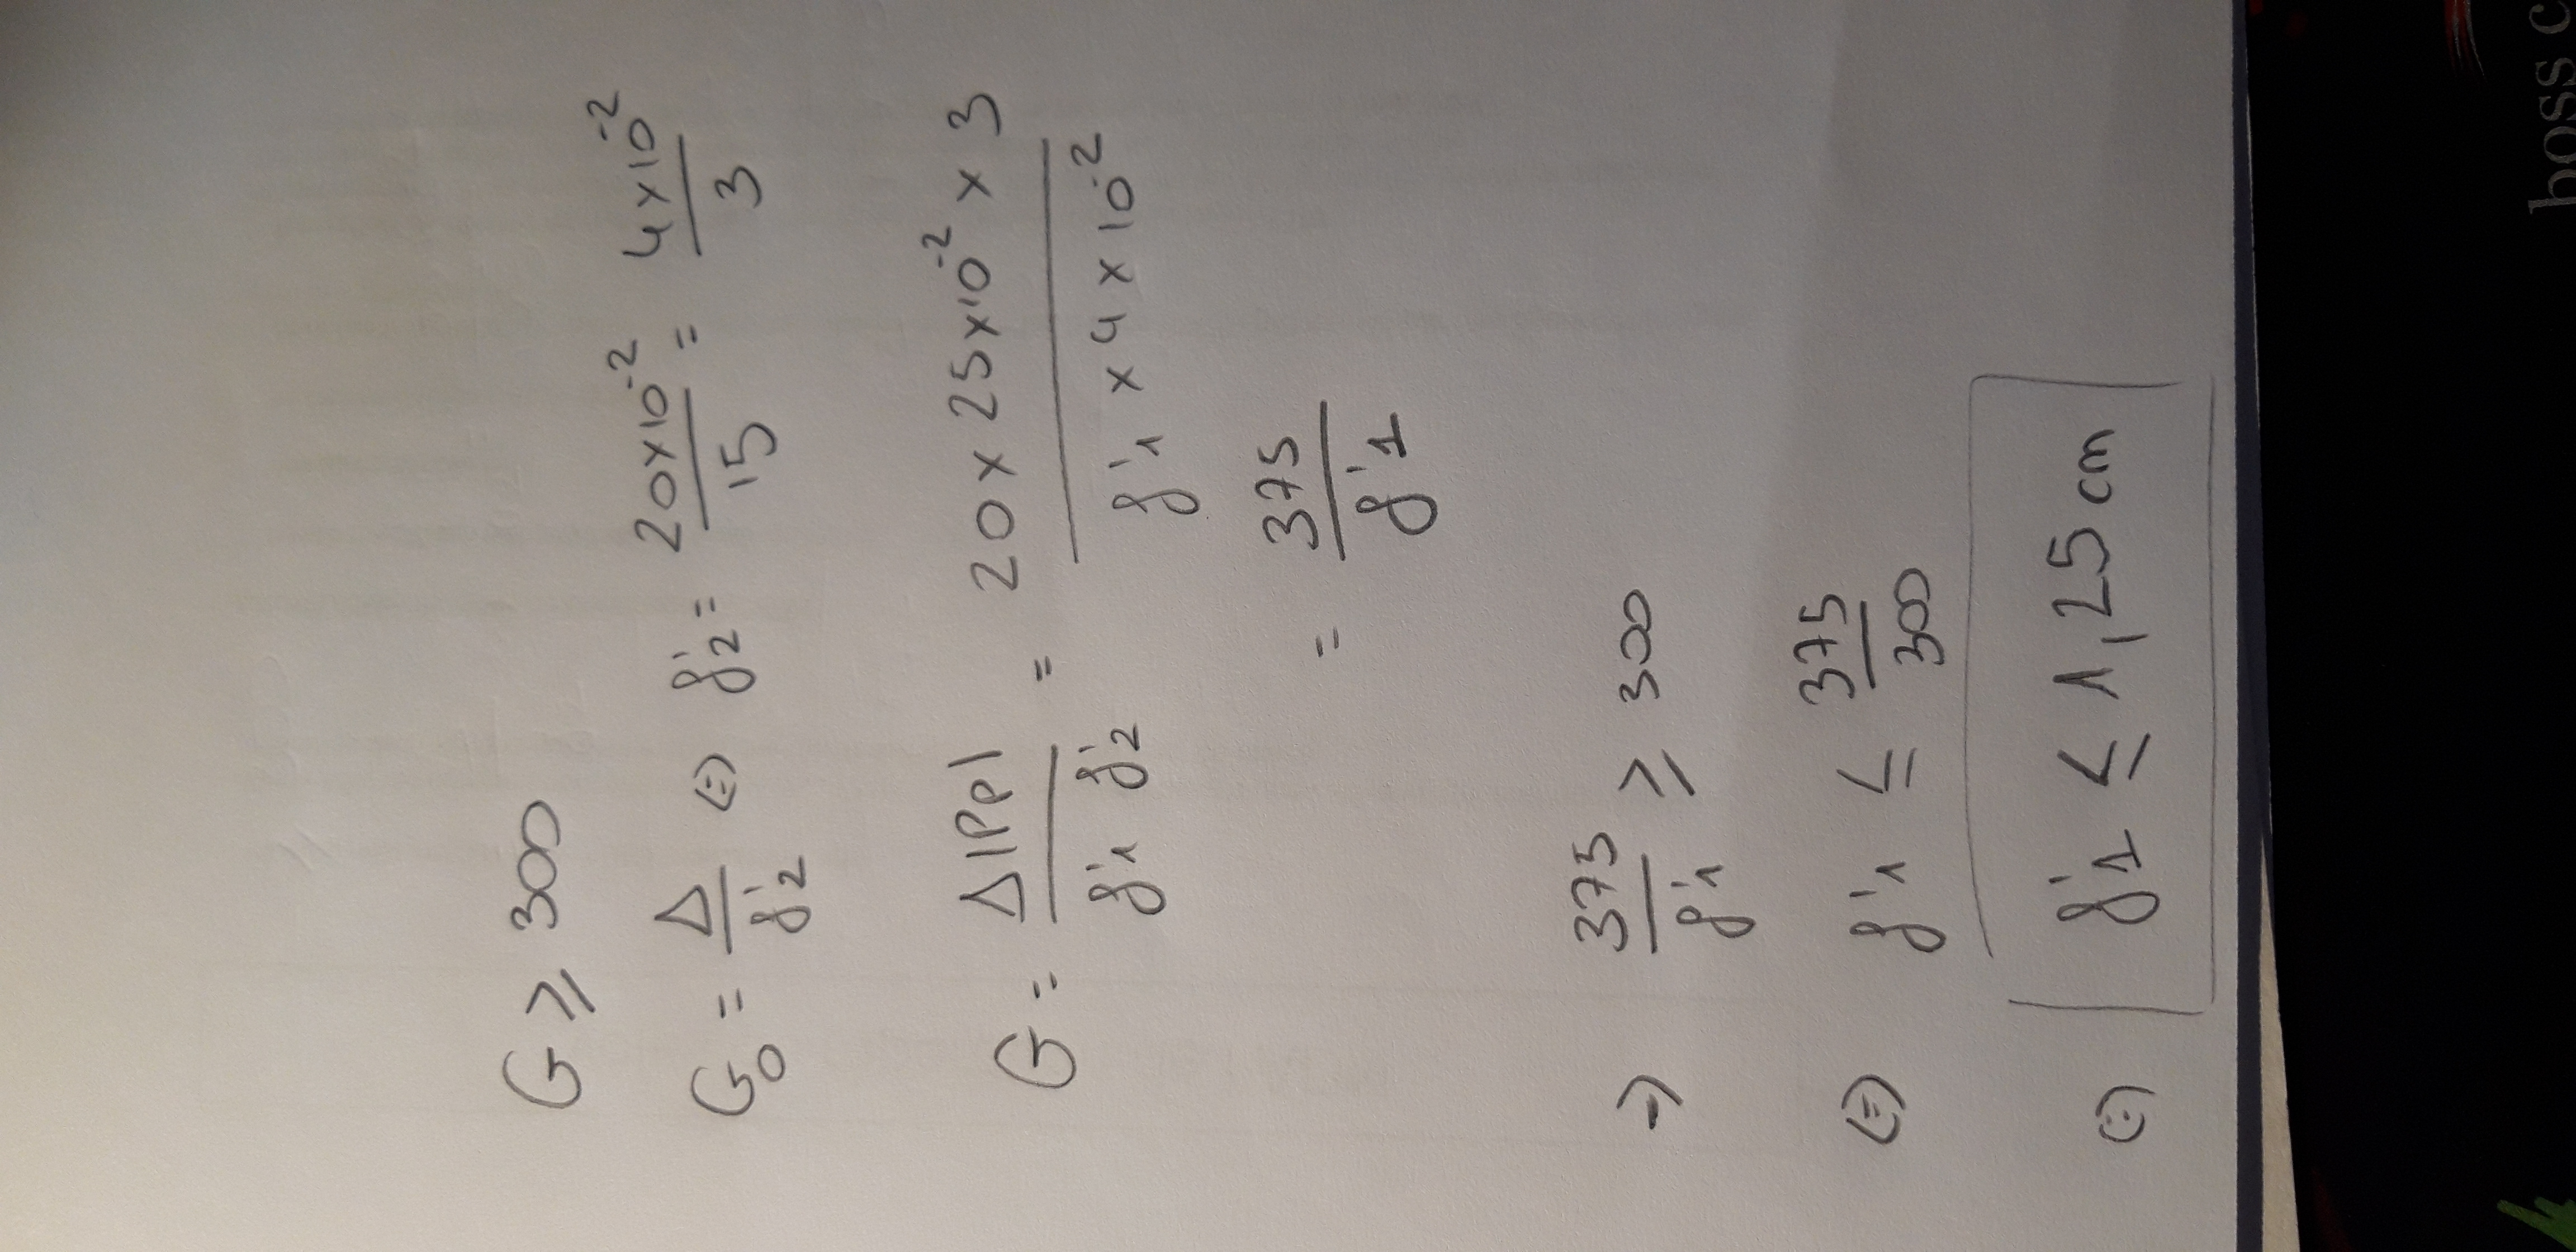 G ⩾ 300
G0 = Δ/f'2 (=) f'2 = 20x10^-2/15 = 4x10^-2/3
G = Δ|Pp|/f'1 f'2 = 20 x 25x10^-2 x 3/f'1 x 4 x 10^-2
= 375/f'1
=) 375/f'1 ⩾ 300
(=) f'1 ≤ 375/300
(=) f'1 ≤ 1,25 cm
boss c